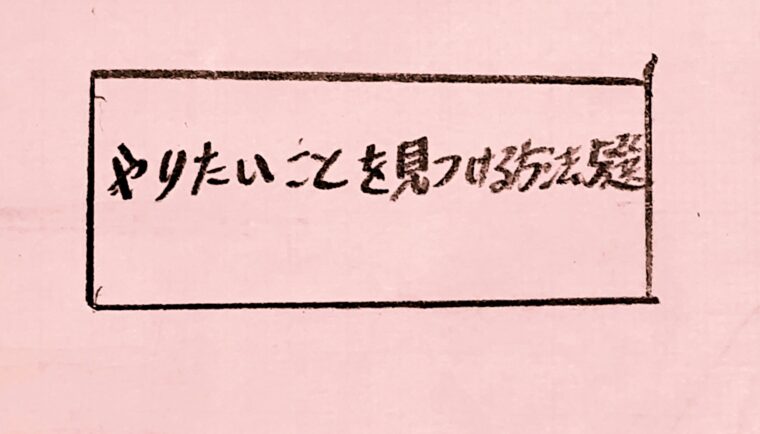 やりたいことを見つける方法5選